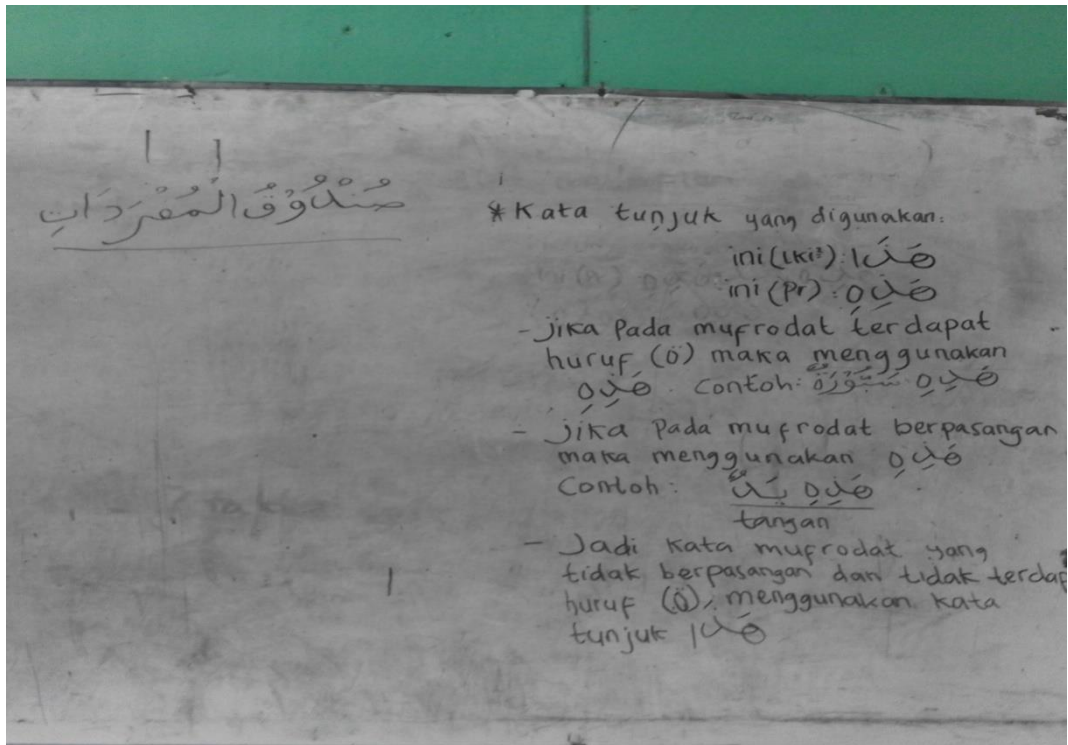 صُنْدُوْقُ الْمُفْرَدَاتِ
* Kata tunjuk yang digunakan:
ini (Lki²): هَذَا
ini (Pr): هَذِهِ
- jika Pada mufrodat terdapat
huruf (ة) maka menggunakan
هَذِهِ. Contoh: هَذِهِ سَبُّوْرَةٌ
- jika Pada mufrodat berpasangan
maka menggunakan هَذِهِ
Contoh: هَذِهِ يَدٌ
tangan
- Jadi kata mufrodat yang
tidak berpasangan dan tidak terdap
huruf (ة), menggunakan kata
tunjuk هَذَا